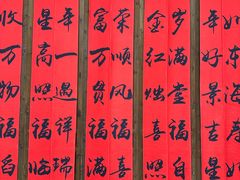 年好景吉星
岁满堂喜自
金红烛喜照
荣顺风福喜
富万贯福满
年一遇祥瑞
星高照福临
收万物福